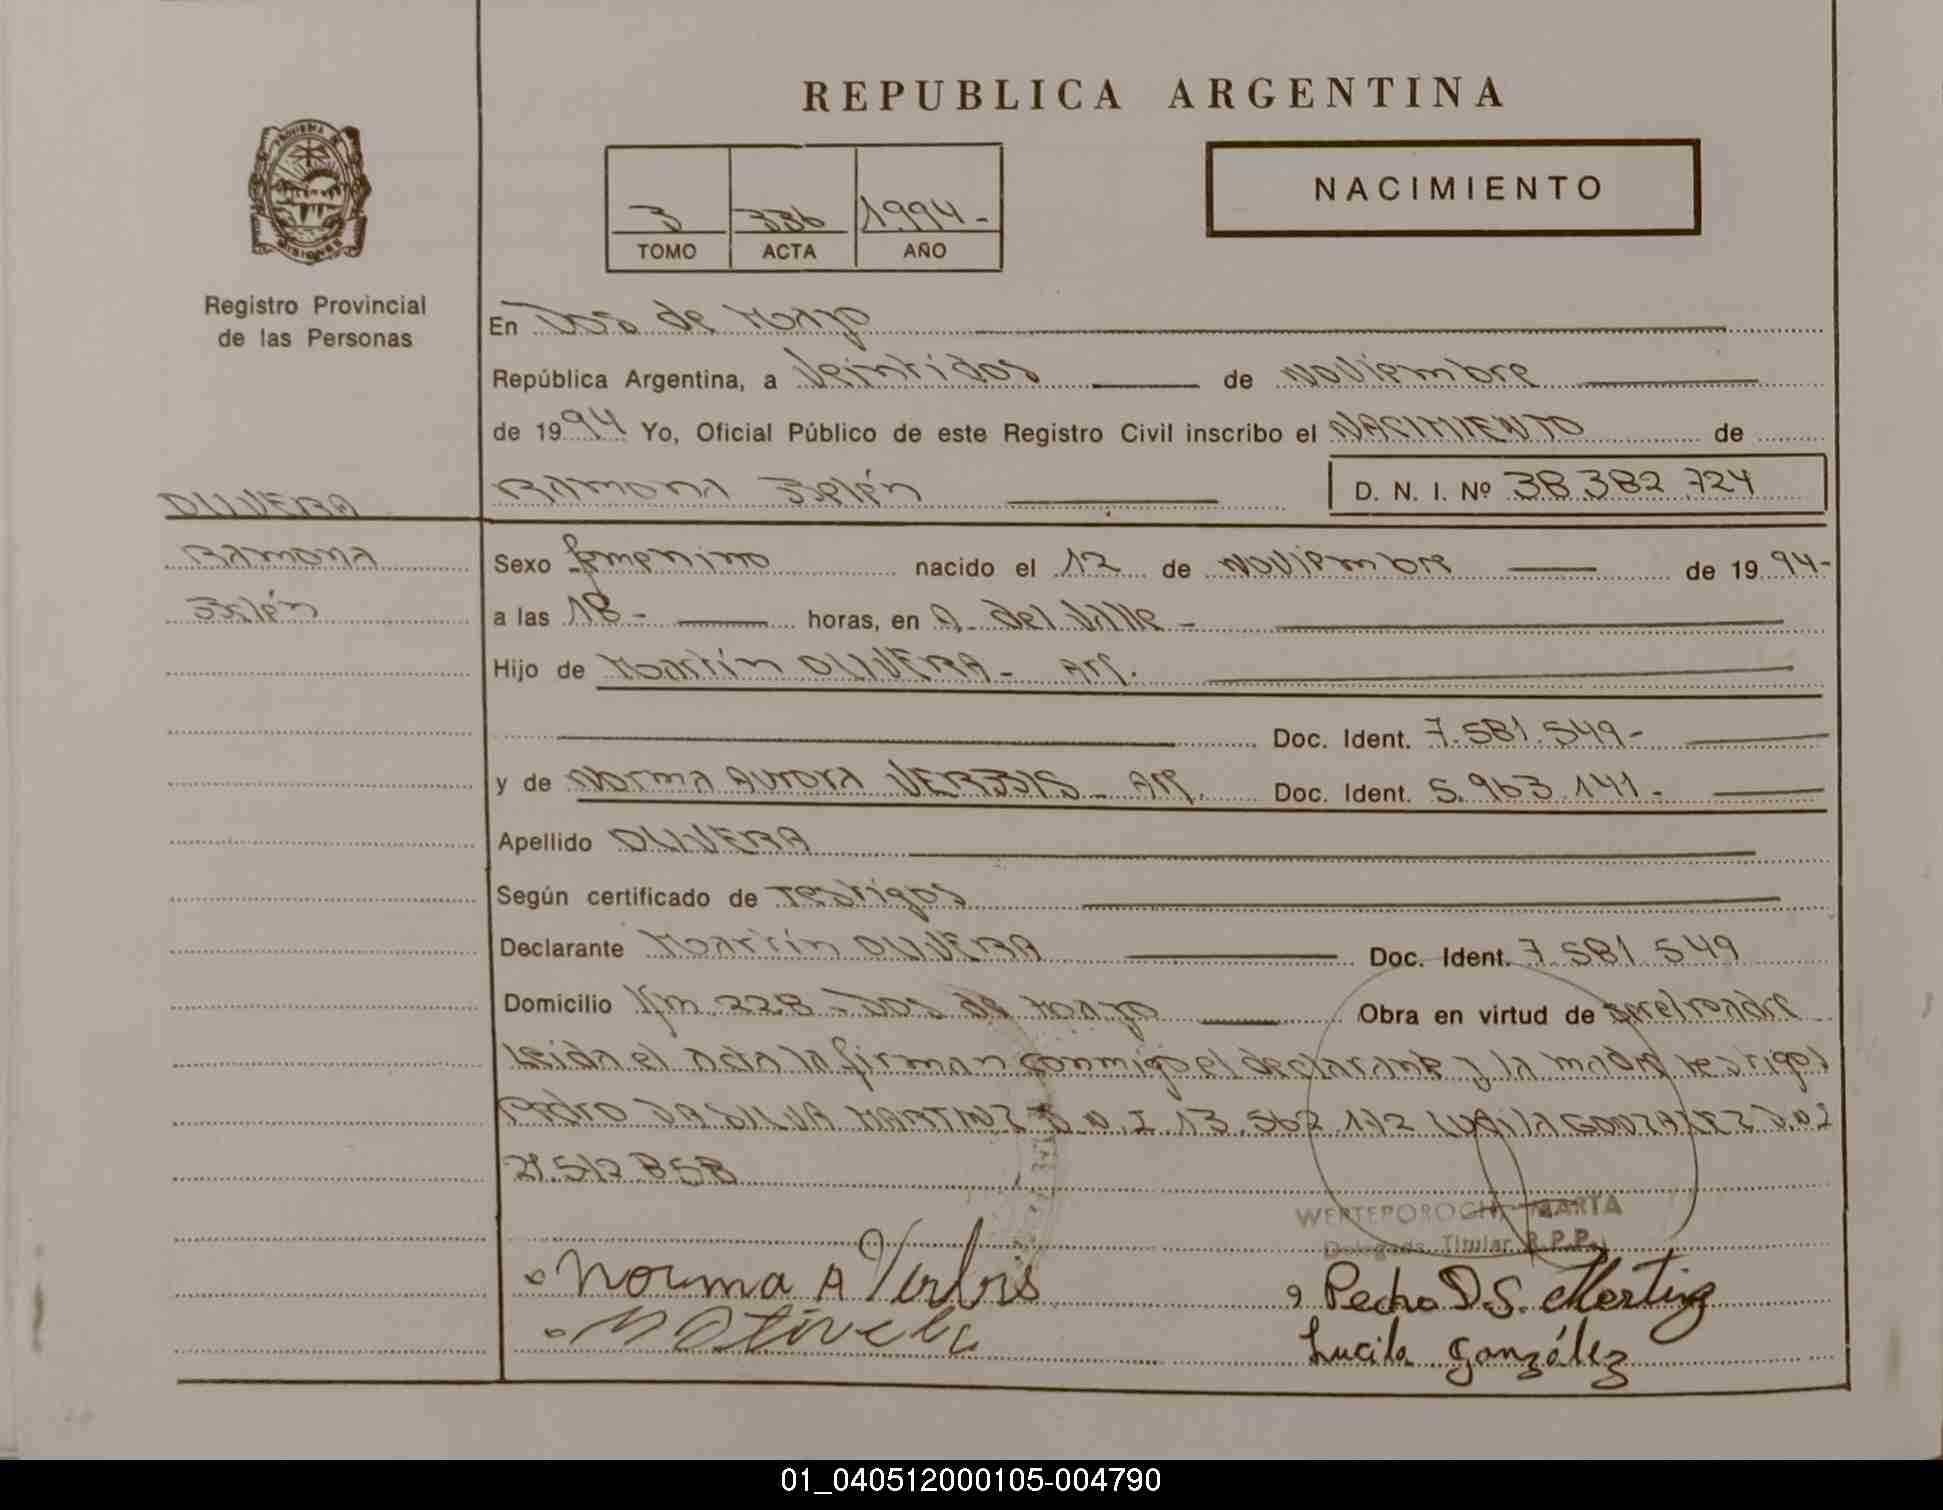 REPUBLICA ARGENTINA
NACIMIENTO
3 336 1994-
TOMO ACTA AÑO
Registro Provincial
de las Personas
En Dos de Mayo
República Argentina, a Veintidos de Noviembre
de 1994 Yo, Oficial Público de este Registro Civil inscribo el NACIMIENTO de
Ramona Belén D. N. I. Nº 38 382 724
OLIVERA
Ramona
Belén
Sexo femenino nacido el 12 de Noviembre de 1994-
a las 18- horas, en A. del Valle-
Hijo de Martín OLIVERA- Arg.
Doc. Ident. 7.581.549-
y de Norma Aurora VERBIS- Arg. Doc. Ident. 5.963.141-
Apellido OLIVERA
Según certificado de Testigos
Declarante Martín OLIVERA Doc. Ident. 7 581 549
Domicilio Km. 228 - Dos de Mayo Obra en virtud de
Leida el acta la firman conmigo el declarante y la madre testigos
Pedro DA SILVA MARTINZ D.N.I 13.562.112 Lucila GONZALEZ D.N.I
21.512 858
WERTEPOROCH, MARTA
Delegada Titular R.P.P.
Norma A Verbis
Pedro D.S. Martinz
M Olivera
Lucila González
01_040512000105-004790